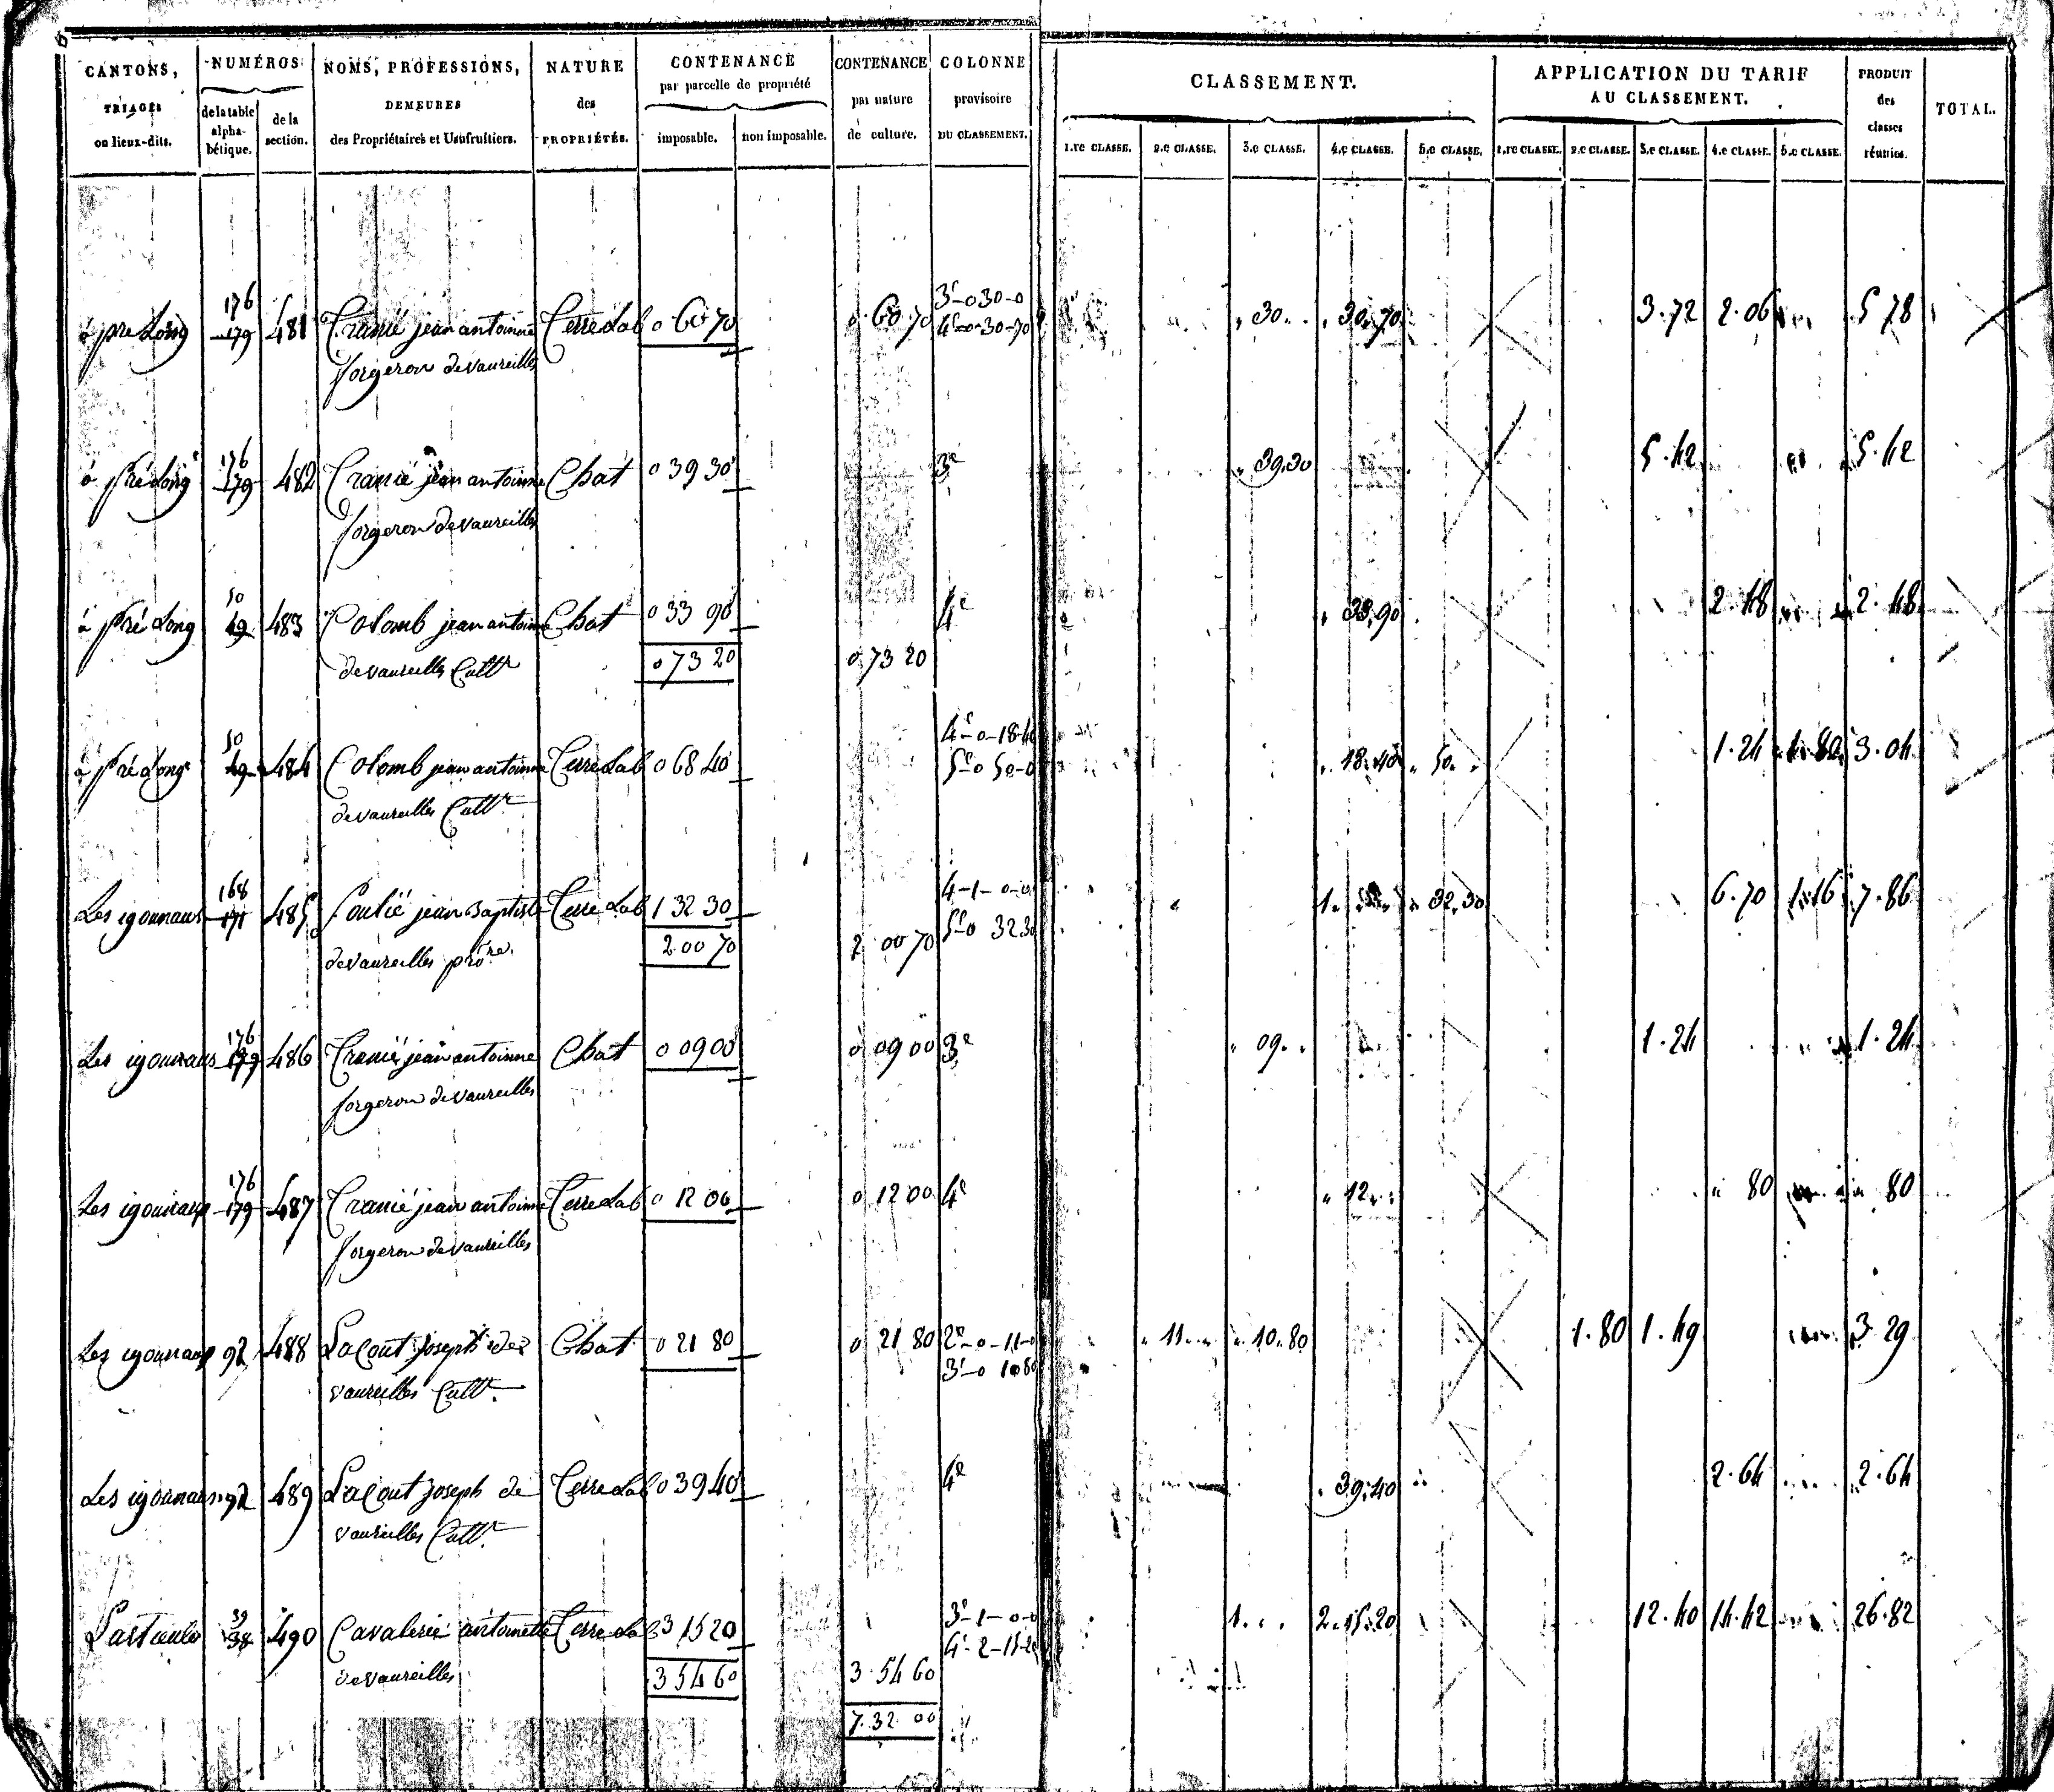 CANTONS, TRIAGES ou lieux-dits. NUMÉROS de la table alphabétique. de la section. NOMS, PROFESSIONS, DEMEURES des Propriétaires et Usufruitiers. NATURE des PROPRIÉTÉS. CONTENANCE par parcelle de propriété imposable. non imposable. CONTENANCE par nature de culture. COLONNE provisoire DU CLASSEMENT. CLASSEMENT. 1.re CLASSE. 2.e CLASSE. 3.e CLASSE. 4.e CLASSE. 5.e CLASSE. APPLICATION DU TARIF AU CLASSEMENT. 1.re CLASSE. 2.e CLASSE. 3.e CLASSE. 4.e CLASSE. 5.e CLASSE. PRODUIT des classes réunies. TOTAL.
176 3e-0 30-0
à pré Long 179 481 jean antoinne Terre Lab 0 60 70 0 60 70 4e-0-30-70 30 30.70 3.72 2.06 5 78
forgeron de vaureilles
176
à pré Long 179 482 jean antoinne Chat 0 39 30 3e 39.30 5.42 5.42
forgeron de vaureilles
50
à pré Long 49 483 Colomb jean antoinne Chat 0 33 90 4e 33.90 2.48 2.48
de vaureilles Cultr 0 73 20 0 73 20
50 4e-0-18-40
à pré Long 49 484 Colomb jean antoinne Terre Lab 0 68 40 5e-0 50-0 18.40 50 1.24 1.80 3.04
de vaureilles Cultr
168 4-1-0-0
Les igounaux 171 485 jean Baptiste Terre Lab 1 32 30 5e-0 32 30 1. 32.30 6.70 1.16 7.86
de vaureilles pro.re 2 00 70 2 00 70
176
Les igounaux 179 486 jean antoinne Chat 0 09 00 0 09 00 3e 09 1.24 1.24
forgeron de vaureilles
176
Les igounaux 179 487 jean antoinne Terre Lab 0 12 00 0 12 00 4e 12 80 80
forgeron de vaureilles
Les igounaux 92 488 Lacout joseph de Chat 0 21 80 0 21 80 2e-0-11-0 11 10.80 1.80 1.49 3 29
vaureilles Cultr 3e-0 10 80
Les igounaux 92 489 Lacout joseph de Terre Lab 0 39 40 4e 39.40 2.64 2.64
vaureilles Cultr
39 3e-1-0-0
38 490 Cavalerie antoinette Terre Lab 3 15 20 4e-2-15-20 1. 2.15.20 12.40 14.42 26.82
de vaureilles 3 54 60 3 54 60
7.32 00